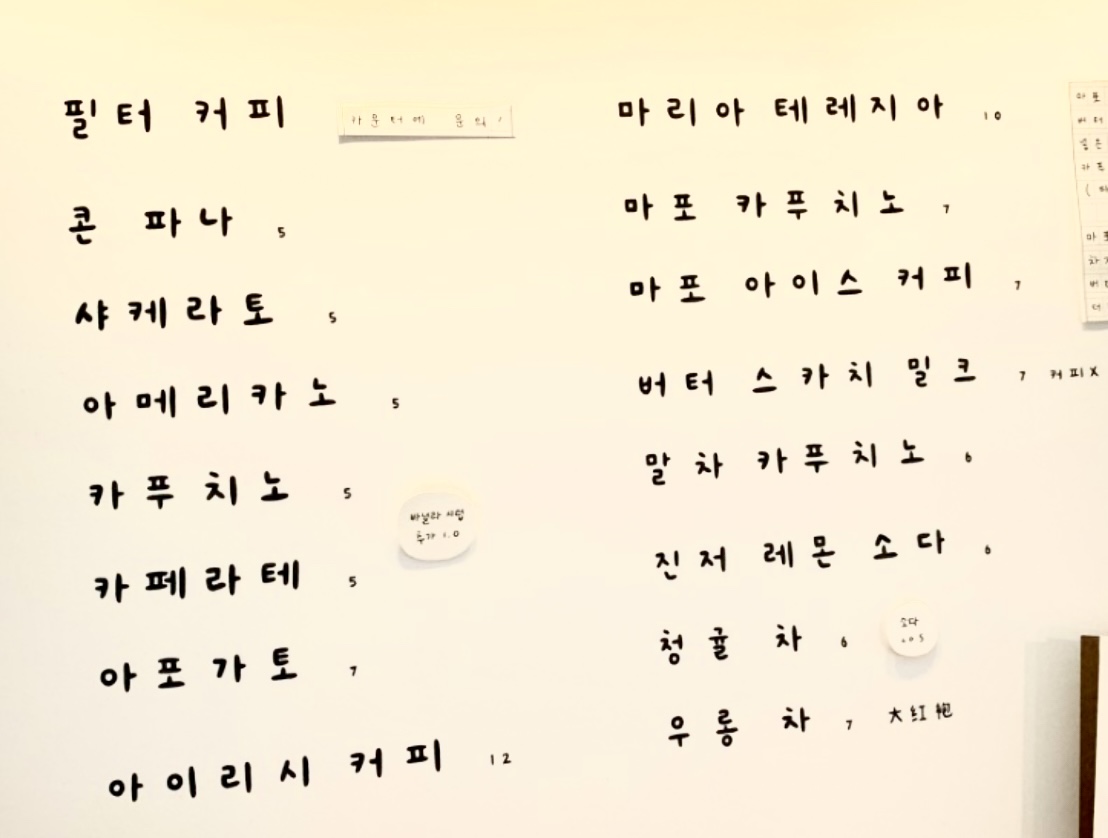 필터 커피
카운터에 문의!
콘 파나 5
샤케라토 5
아메리카노 5
카푸치노 5
바닐라 시럽
추가 1.0
카페라테 5
아포가토 7
아이리시 커피 12
마리아 테레지아 10
마포 카푸치노 7
마포 아이스 커피 7
버터 스카치 밀크 7 커피X
말차 카푸치노 6
진저 레몬 소다 6
청귤 차 6
소다
+0.5
우롱 차 7 大红袍
마포
버터
카푸
마포
버터